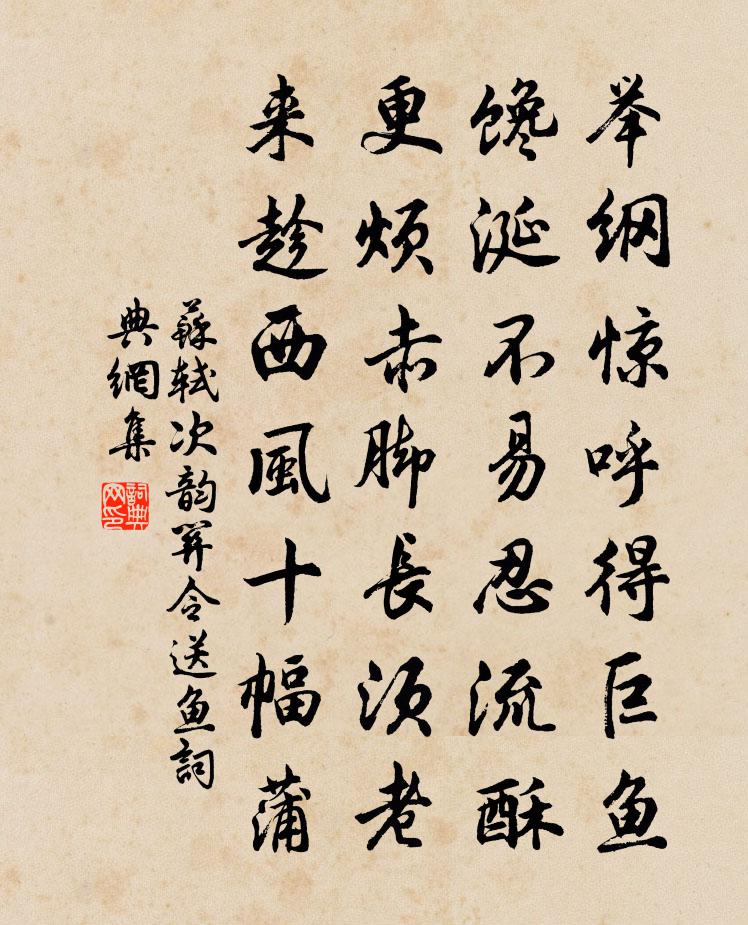 举纲惊呼得巨鱼
馋涎不易忍流酥
更烦赤脚長须老
来趁西風十幅蒲
蘇轼次韵関令送鱼詞
典網集
詞典网印